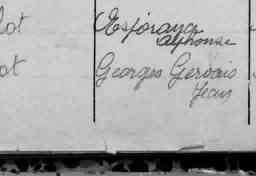 lot Espiraya
Alphonse
ot Georges Gervais
Jean